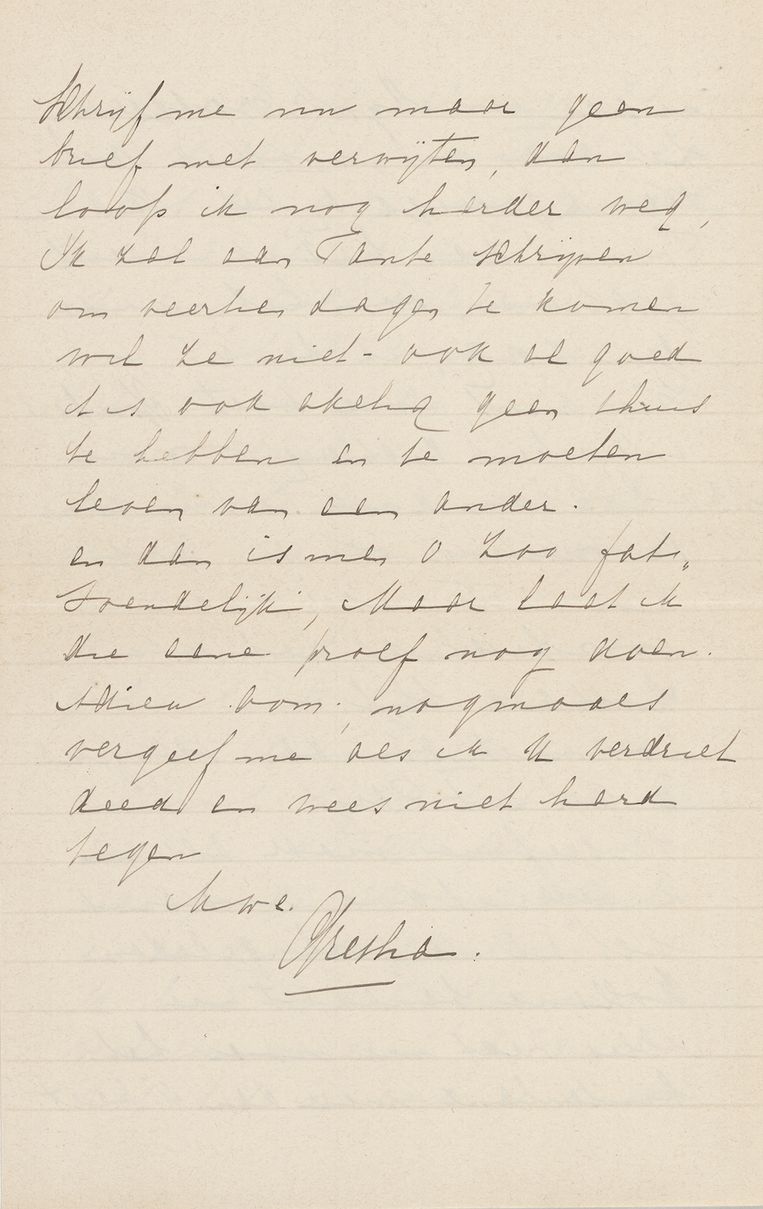 Schrijf me nu maar geen
brief met verwijten, dan
loop ik nog harder weg,
Ik zal aan Tante schrijven
om veertien dagen te komen
wil ze niet - ook al goed
't is ook akelig geen thuis
te hebben en te moeten
leven van een ander.
en dan is men o zoo fat„
soendelijk, Maar laat ik
die eene proef nog doen.
Adieu oom, nogmaals
vergeef me als ik U verdriet
deed en wees niet hard
tegen
Uwe.
Gretha.